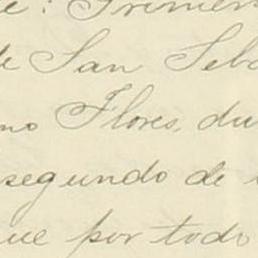 e: Primer
de San Seba
no Flores, du
segundo de
que por todo